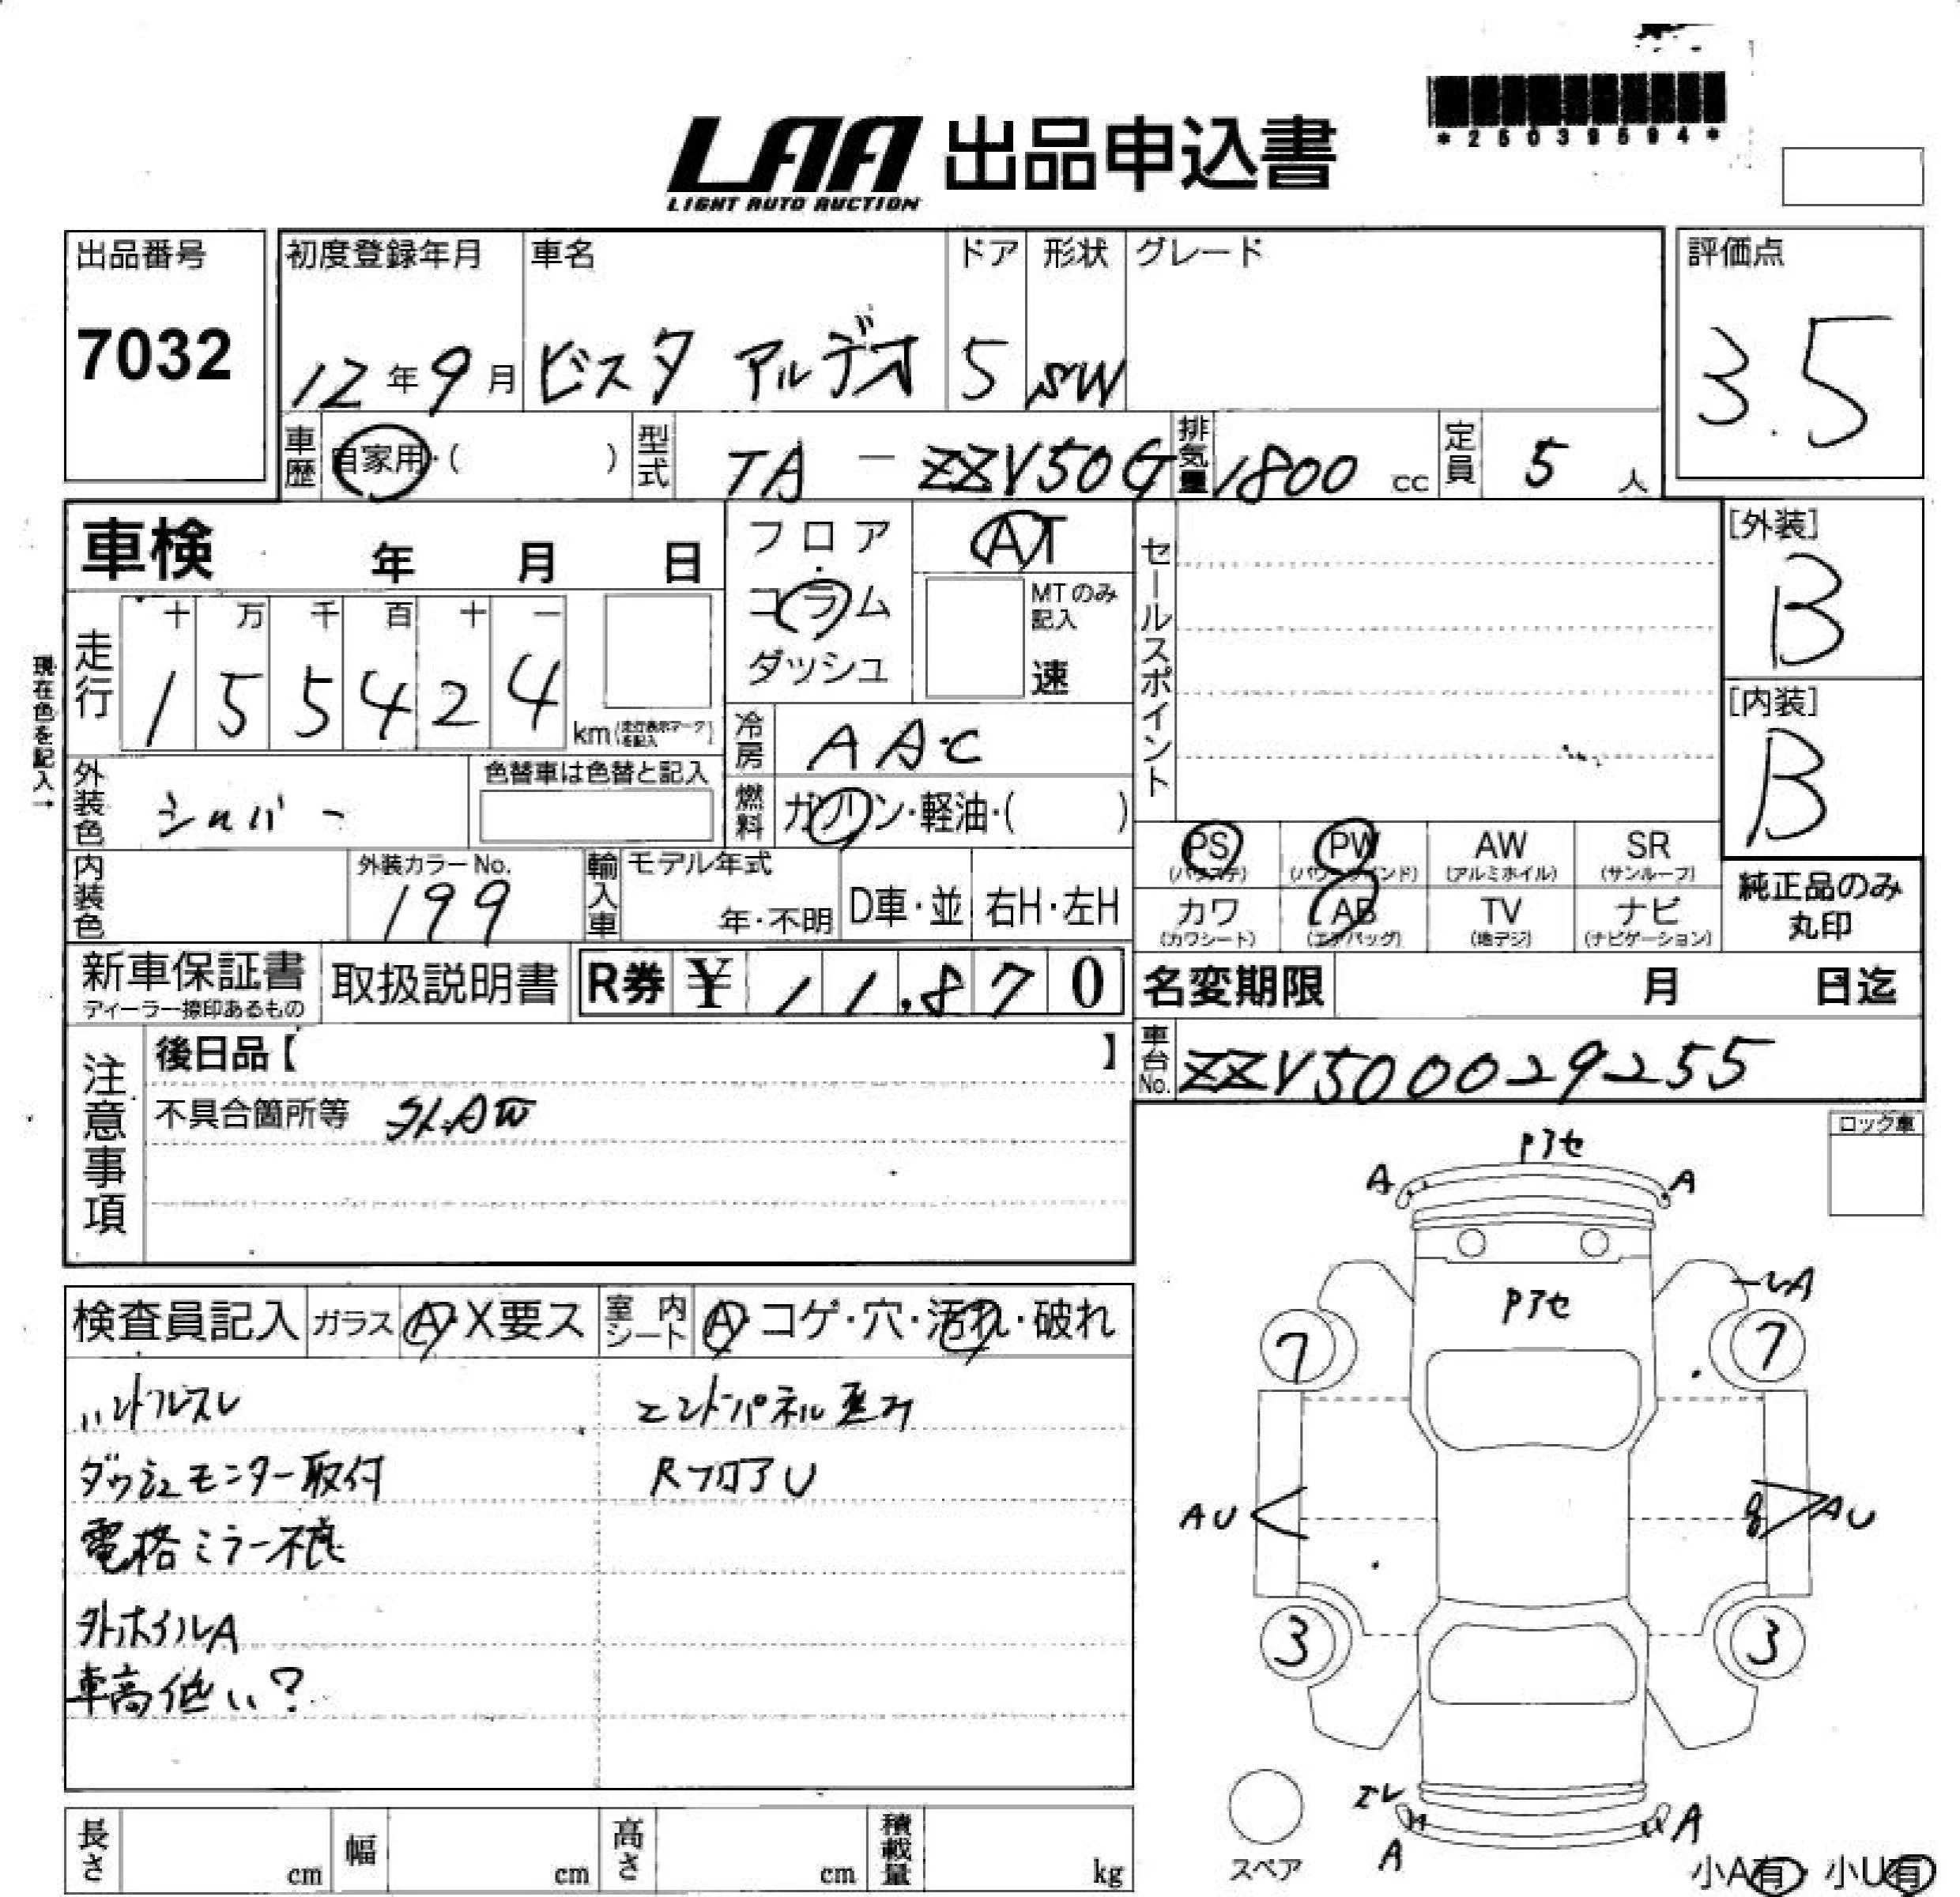 *25039594*
LAA 出品申込書
LIGHT AUTO AUCTION
出品番号
7032
初度登録年月 車名 ドア 形状 グレード
12年9月 ビスタ アルデオ 5 SW
評価点
3.5
車歴 自家用・( ) 型式 TA - ZZV50G 排気量 1800 cc 定員 5 人
車検 年 月 日
フロア・コラム ダッシュ
AT
MTのみ記入
速
セールスポイント
[外装]
B
現在色を記入→
走行 十 万 千 百 十 一
155424 km(走行表示マークを記入)
冷房 AAC
[内装]
B
外装色 シルバー 色替車は色替と記入
燃料 ガソリン・軽油・( )
PS (パワステ) PW (パワーウインド) AW (アルミホイル) SR (サンルーフ)
カワ (カワシート) AB (エアバッグ) TV (地デジ) ナビ (ナビゲーション)
純正品のみ丸印
内装色 外装カラーNo. 199
輸入車 モデル年式 年・不明 D車・並 右H・左H
新車保証書 ディーラー捺印あるもの 取扱説明書 R券 ¥ 11,870
名変期限 月 日迄
車台No. ZZV500029255
注意事項
後日品【 】
不具合箇所等 外AW
ロック車
検査員記入 ガラス A・X要ス 室内シート A・コゲ・穴・汚れ・破れ
ハンドルスレ エンドパネル歪み
ダッシュモニター取付 RフロアU
電格ミラー不良
外ホイルA
車高低い?
Pアセ
A A
Pアセ
A
7 7
AU AU
3 3
A
A
スペア
小A有・小U有
長さ cm 幅 cm 高さ cm 積載量 kg